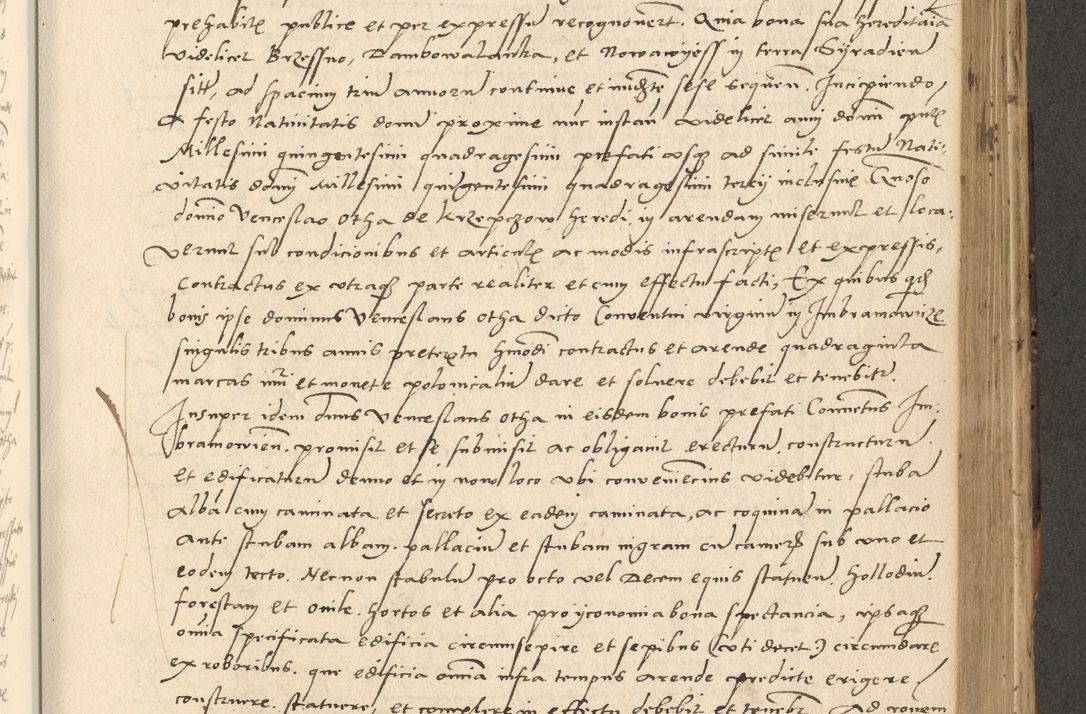 prehabite publice et per expressum recognoverunt. Quia bona sua hereditaria
videlicet Brzessno, Dambowalanka, et Nowawyess in terra Syradien
sitt, ad spacium trium annorum continue et immediate sese sequen. Incipiendo
a festo Nativitatis domini proxime nunc instan videlicet anni domini pntis
Millesimi quingentesimi quadragesimi prefati usque ad simile festum Nati-
vitatis domini Millesimi quingentesimi quadragesimi tercii inclusive Generoso
domino Venceslao Otha de Krzepczow heredi in arendam miserunt et loca-
verunt sub condicionibus et articulis ac modis infrascriptis et expressis,
Contractus ex utraque parte realiter et cum effectu facti, Ex quibus quidem
bonis ipse dominus Venceslaus Otha dicto Conventui virginum in Imbramowicze
singulis tribus annis pretextu hmodi contractus et arende quadraginta
marcas et monete polonicalium dare et solvere debebit et tenebitur.
Insuper idem dominus Venceslaus Otha in eisdem bonis prefati Conventus Im-
bramowien. promisit et se submisit ac obligavit erecturum. constructurum.
et edificaturum denuo et in novo loco ubi conveniencius videbitur, stuba
alba cum caminata et secreto ex eadem caminata, ac coquina in pallacio
ante stubam albam. pallacium et stubam nigram cum camera sub uno et
eodem tecto. Necnon stabulum pro octo vel Decem equis statuen. hollodium.
forestam et ovile. hortos et alia pro yconomia bona spectancia, ipsaque
omnia specificata edificia circumsepire et sepibus (uti decet:) circumdare
ex roboribus. que edificia omnia infra tempus arende predicte erigere
construere. statuere, et complere in effectu debebit et tenebitur. Ad